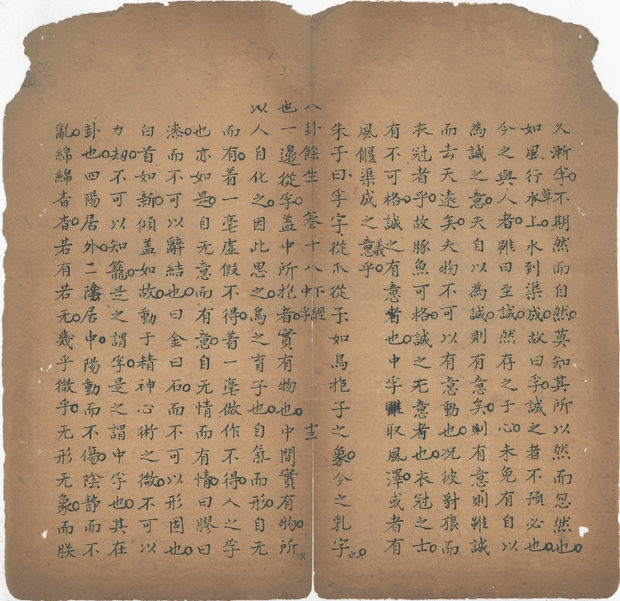 久漸孚不期然而自然莫知其所以然而忽然也
如風行水上水到渠成故曰孚誠之者不預必也
今之與人者雖曰至誠然存之于心未免有自以
為誠之意夫自以為誠則有意矣則有意則雖誠
而去天遠矣夫物不可以有意動也况彼豺狼而
衣冠者乎故豚魚可格誠之无意者也衣冠之士
有不可格誠之有意者也中孚雖取風澤或者有
風偃渠成之意義乎
朱子曰孚字從爪從子如鳥抱子之象今之乳字也
八卦餘生 卷十八 下經 中孚 十三
也一邊從孚蓋中所抱者實有物也中間實有物所以
以人自化之因此思之鳥之育子也自氣而形自无
而有着一毫虛假不得着一毫做作不得人之孚
也亦如是自无意而有意自无情而有情曰膠曰
漆而不可以辭結也曰金曰石而不可以形固也
白首如新傾蓋如故動于精神心術之微不可以
力劫不可以知籠是之謂孚是之謂中孚也其在
卦也四陽居外二陰居中陽動而不傷陰静而不
亂綿綿杳杳若有若无幾乎微乎无形无象而朕